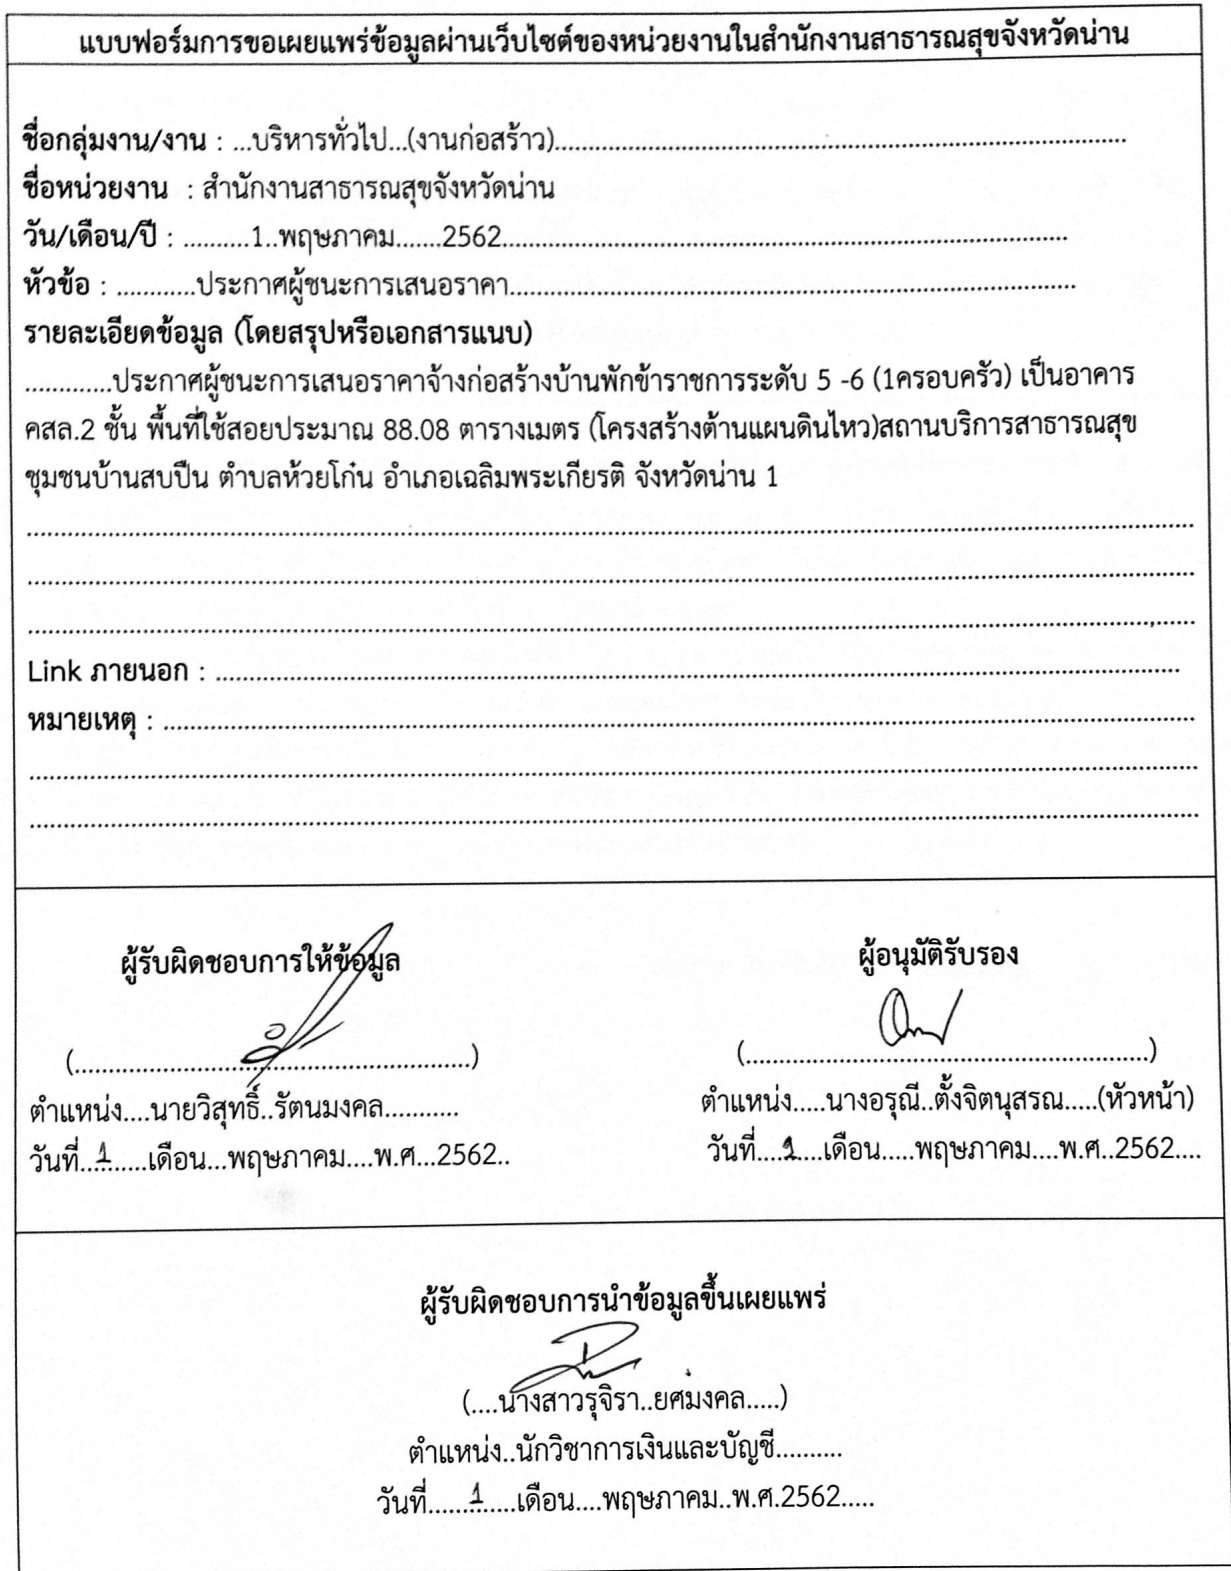 แบบฟอร์มการขอเผยแพร่ข้อมูลผ่านเว็บไซต์ของหน่วยงานในสำนักงานสาธารณสุขจังหวัดน่าน
ชื่อกลุ่มงาน/งาน : ...บริหารทั่วไป...(งานก่อสร้าว)....................................................................................
ชื่อหน่วยงาน : สำนักงานสาธารณสุขจังหวัดน่าน
วัน/เดือน/ปี : ..........1..พฤษภาคม.......2562.....................................................................................
หัวข้อ : ............ประกาศผู้ชนะการเสนอราคา.....................................................................................
รายละเอียดข้อมูล (โดยสรุปหรือเอกสารแนบ)
.............ประกาศผู้ชนะการเสนอราคาจ้างก่อสร้างบ้านพักข้าราชการระดับ 5 -6 (1ครอบครัว) เป็นอาคาร
คสล.2 ชั้น พื้นที่ใช้สอยประมาณ 88.08 ตารางเมตร (โครงสร้างต้านแผนดินไหว)สถานบริการสาธารณสุข
ชุมชนบ้านสบปืน ตำบลห้วยโก๋น อำเภอเฉลิมพระเกียรติ จังหวัดน่าน 1
Link ภายนอก : ................................................................................................................
หมายเหตุ : ................................................................................................................
ผู้รับผิดชอบการให้ข้อมูล
ผู้อนุมัติรับรอง
(...........................................................)
(............................................................)
ตำแหน่ง....นายวิสุทธิ์..รัตนมงคล...........
ตำแหน่ง.....นางอรุณี..ตั้งจิตนุสรณ.....(หัวหน้า)
วันที่....1......เดือน...พฤษภาคม....พ.ศ...2562..
วันที่....1....เดือน.....พฤษภาคม....พ.ศ..2562....
ผู้รับผิดชอบการนำข้อมูลขึ้นเผยแพร่
(....นางสาวรุจิรา..ยศมงคล.....)
ตำแหน่ง..นักวิชาการเงินและบัญชี..........
วันที่......1.....เดือน....พฤษภาคม..พ.ศ.2562.....